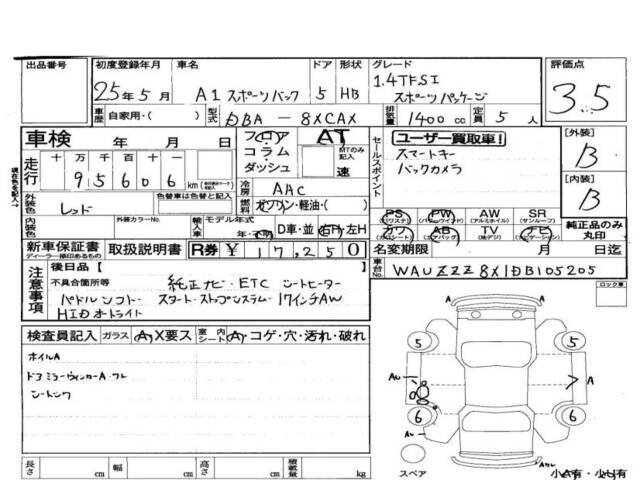 出品番号 初度登録年月 車名 ドア 形状 グレード 評価点
25年5月 A1 スポーツバック 5 HB 1.4TFSI スポーツパッケージ 3.5
車歴 自家用・( ) 型式 DBA - 8XCAX 排気量 1400cc 定員 5人
車検 年 月 日 フロア AT ユーザー買取車! [外装]
走行 十 万 千 百 十 一 コラム MTのみ記入 セールスポイント スマートキー B
95606 km ダッシュ 速 バックカメラ [内装]
外装色 レッド 色替車は色替と記入 冷房 AAC B
燃料 ガソリン・軽油・( )
内装色 外装カラーNo. 輸入車 モデル年式 年・不明 D車・並 右H・左H
PS PW AW SR 純正品のみ丸印
(パワステ) (パワーウインド) (アルミホイル) (サンルーフ)
カワ AB TV ナビ
(カワシート) (エアバック) (地デジ) (ナビゲーション)
新車保証書 取扱説明書 R券 ¥ 17,250 名変期限 月 日迄
ディーラー捺印あるもの
注意事項 後日品[ ] 車台No. WAUZZZ8X1DB105205
不具合箇所等 純正ナビ・ETC シートヒーター ロック車
パドルシフト・スタートストップシステム・17インチAW
HIDオートライト
検査員記入 ガラス A・X要ス 室内シート A・コゲ・穴・汚れ・破れ
ホイルA
ドアミラーウィンカーA・ワレ
シートシワ
5 5
AU A A
6 6
スペア Aワレ
長さ cm 幅 cm 高さ cm 積載量 kg 小A有・小U有